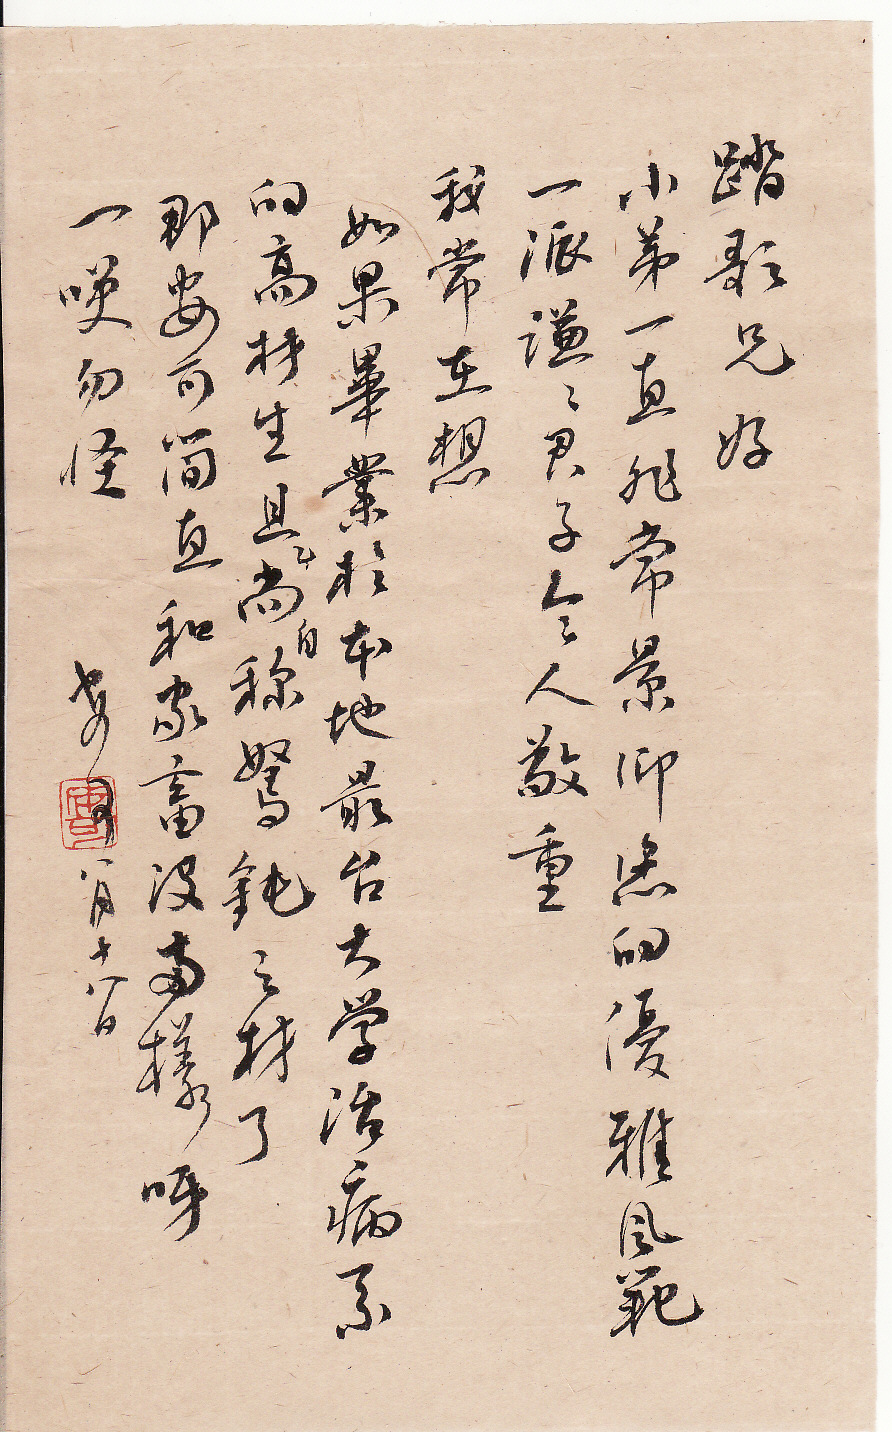 踏歌兄好
小弟一直非常景仰您的優雅風範
一派謙謙君子令人敬重
我常在想
如果畢業於本地最台大学治病系
的高材生且才尚自称駑鈍之材了
那安可简直和家畜没兩樣呀
一笑勿怪
安可
八月十八日